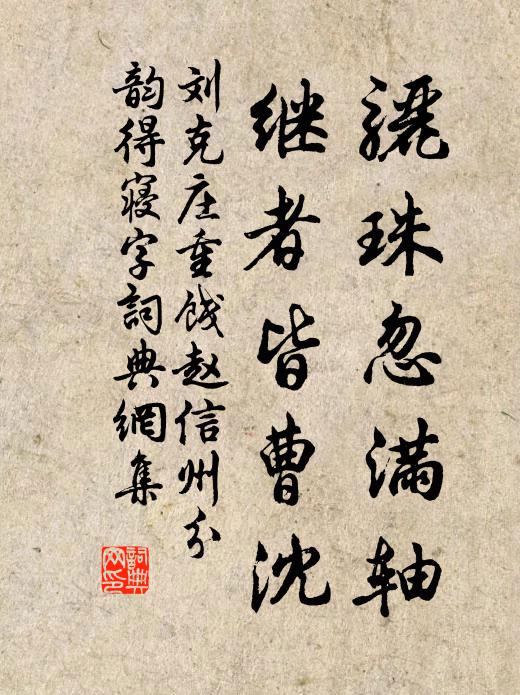 骊珠忽满轴
继者皆曹沈
刘克庄重饯赵信州分
韵得寝字詞典網集
詞典
网印